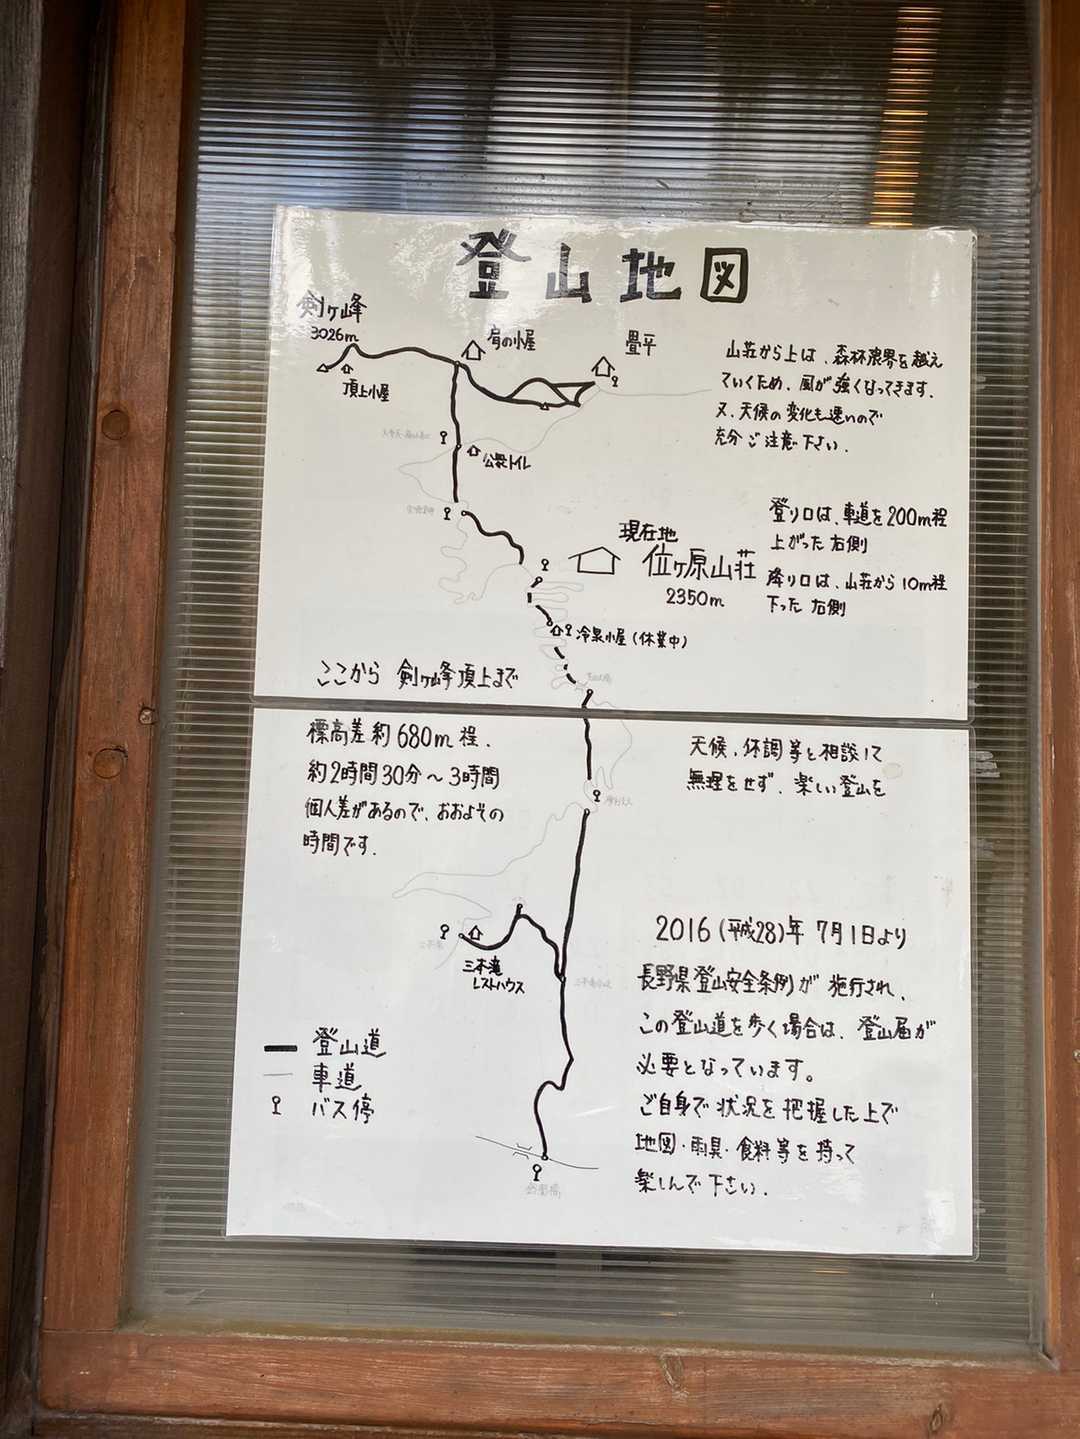 登山地図
剣ヶ峰
3026m
頂上小屋
肩の小屋
畳平
山荘から上は、森林限界を越え
ていくため、風が強くなってきます。
又、天候の変化も速いので
充分ご注意下さい。
公衆トイレ
登り口は、車道を200m程
上がった右側
降り口は、山荘から10m程
下った右側
現在地
位ヶ原山荘
2350m
冷泉小屋(休業中)
ここから 剣ヶ峰頂上まで
標高差約680m程、
約2時間30分〜3時間
個人差があるので、おおよその
時間です。
天候、体調等と相談して
無理をせず、楽しい登山を
三本滝
レストハウス
2016(平成28)年 7月1日より
長野県登山安全条例が施行され、
この登山道を歩く場合は、登山届が
必要となっています。
ご自身で状況を把握した上で
地図・雨具・食料等を持って
楽しんで下さい。
登山道
車道
バス停